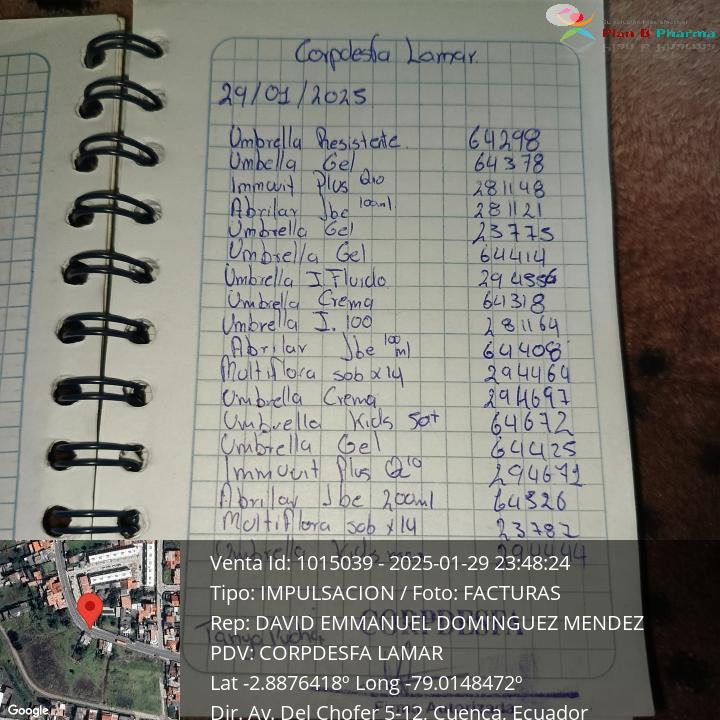 Plan B Pharma
Corpdesfa Lamar.
29/01/2025
Umbrella Resistente. 64298
Umbella Gel 64378
Immuvit Plus Q10 281148
Abrilar Jbe 100ml. 281121
Umbrella Gel 23775
Umbrella Gel 64414
Umbrella I. Fluido 294556
Umbrella Crema 64318
Umbrella I. 100 281164
Abrilar Jbe 100 ml 64408
Multiflora sob x14 294464
Umbrella Crema 294697
Umbrella Kids 50+ 64672
Umbrella Gel 64425
Immuvit Plus Q10 294671
Abrilar Jbe 200ml 64326
Multiflora sob x14 23782
Umbrella Kids 294444
Venta Id: 1015039 - 2025-01-29 23:48:24
Tipo: IMPULSACION / Foto: FACTURAS
Rep: DAVID EMMANUEL DOMINGUEZ MENDEZ
CORPDESFA
PDV: CORPDESFA LAMAR
Lat -2.8876418º Long -79.0148472º
Dir. Av. Del Chofer 5-12, Cuenca, Ecuador
Google